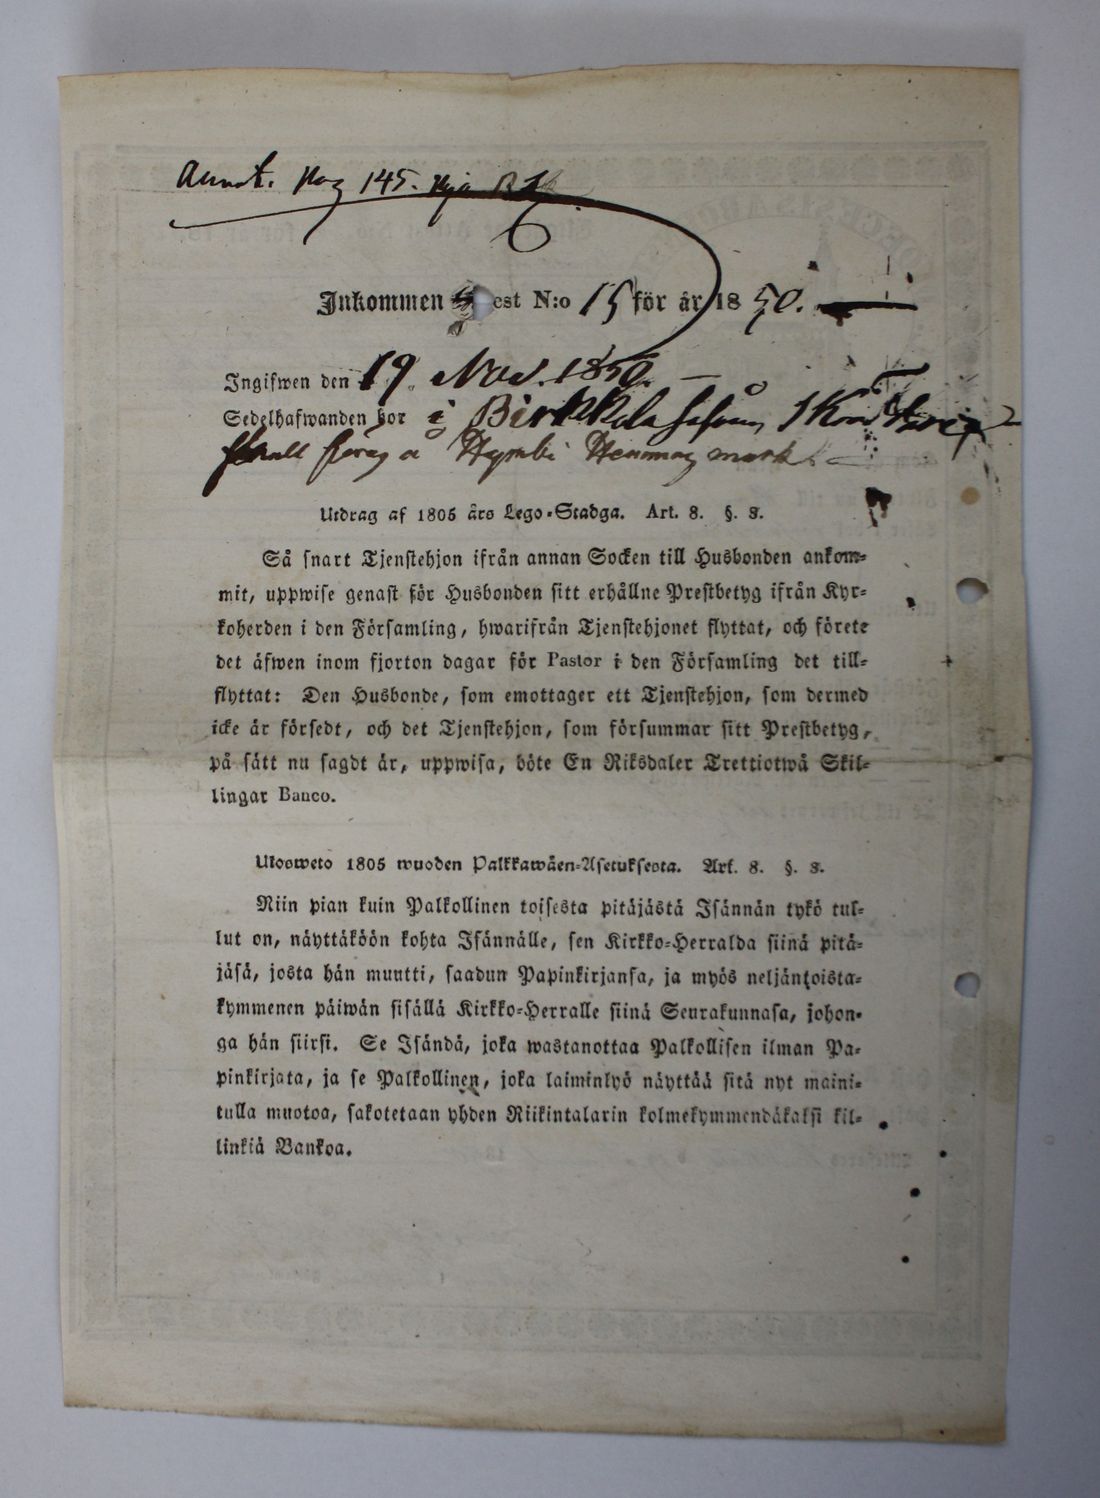 Annot. Pag 145. Nya B
Inkommen est N:o 15 för år 1850.
Ingifwen den 19 Nov. 1850.
Sedelhafwanden bor i
skall å
Utdrag af 1805 års Lego-Stadga. Art. 8. §. 3.
Så snart Tjenstehjon ifrån annan Socken till Husbonden ankom-
mit, uppwise genast för Husbonden sitt erhållne Prestbetyg ifrån Kyr-
koherden i den Församling, hwarifrån Tjenstehjonet flyttat, och förete
det äfwen inom fjorton dagar för Pastor i den Församling det till-
flyttat: Den Husbonde, som emottager ett Tjenstehjon, som dermed
icke är försedt, och det Tjenstehjon, som försummar sitt Prestbetyg,
på sätt nu sagdt är, uppwisa, böte En Riksdaler Trettiotwå Skil-
lingar Banco.
Ulosweto 1805 wuoden Palkkawäen-Asetuksesta. Art. 8. §. 3.
Niin pian kuin Palkollinen toisesta pitäjästä Isännän tykö tul-
lut on, näyttäköön kohta Isännälle, sen Kirkko-Herralda siinä pitä-
jäsä, josta hän muutti, saadun Papinkirjansa, ja myös neljäntoista-
kymmenen päiwän sisällä Kirkko-Herralle siinä Seurakunnasa, johon-
ga hän siirsi. Se Isändä, joka wastanottaa Palkollisen ilman Pa-
pinkirjata, ja se Palkollinen, joka laiminlyö näyttää sitä nyt maini-
tulla muotoa, sakotetaan yhden Riikintalarin kolmekymmendäkaksi kil-
linkiä Bankoa.